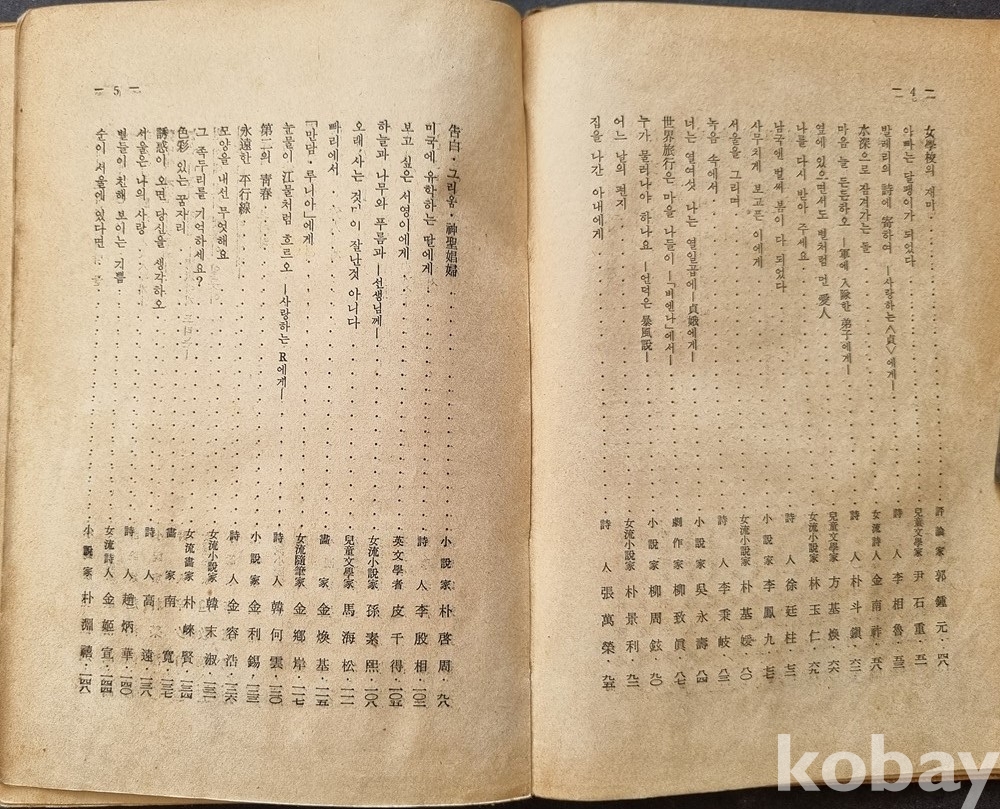 — 4 —
女學校의 재마 評論家 郭鍾元 四八
아빠는 달팽이가 되었다 兒童文學家 尹石重 五一
발레리의 詩에 寄하여 —사랑하는〈貞〉에게— 詩人 李相魯 五三
水深으로 잠겨가는 돌 女流詩人 金南祚 五八
마음 늘 든든하오 —軍에 入隊한 弟子에게— 詩人 朴斗鎭 六三
옆에 있으면서도 별처럼 먼 愛人 兒童文學家 方基煥 六六
나를 다시 받아 주세요 女流小說家 林玉仁 六九
남국엔 벌써 봄이 다 되었다 詩人 徐廷柱 七三
사무치게 보고픈 이에게 小說家 李鳳九 七七
서울을 그리며 女流小說家 朴基媛 八〇
녹음 속에서 詩人 李秉岐 八三
너는 열여섯 나는 열일곱에 —貞娥에게— 小說家 吳永壽 八四
世界旅行은 마을 나들이 —「비엔나」에서— 劇作家 柳致眞 八七
누가 물러나야 하나요 —언덕은 暴風說— 小說家 柳周鉉 九〇
어느 날의 편지 女流小說家 朴景利 九二
집을 나간 아내에게 詩人 張萬榮 九五
— 5 —
告白·그리움·神聖娼婦 小說家 朴啓周 九八
미국에 유학하는 딸에게 詩人 李殷相 一〇三
보고 싶은 서영이에게 英文學者 皮千得 一〇五
하늘과 나무와 푸름과 —선생님께— 女流小說家 孫素熙 一〇八
오래 사는 것만이 잘난것 아니다 兒童文學家 馬海松 一一二
빠리에서 畵家 金煥基 一一五
「만담·루니아」에게 女流隨筆家 金鄕岸 一一七
눈물이 江물처럼 흐르오 —사랑하는 R에게— 詩人 韓何雲 一二〇
第二의 靑春 小說家 金利錫 一二三
永遠한 平行線 詩人 金容浩 一二六
모양을 내선 무엇해요 女流小說家 韓末淑 一三一
그 족두리를 기억하세요? 女流畵家 朴崍賢 一三四
色彩 있는 꿈자리 畵家 南寬 一三七
誘惑이 오면 당신을 생각하오 詩人 高遠 一三八
서울은 나의 사랑 詩人 趙炳華 一四〇
별들이 친해 보이는 기쁨 女流詩人 金姬宣 一四四
순이 서울에 였다면 小說家 朴淵禧 一四八
kobay